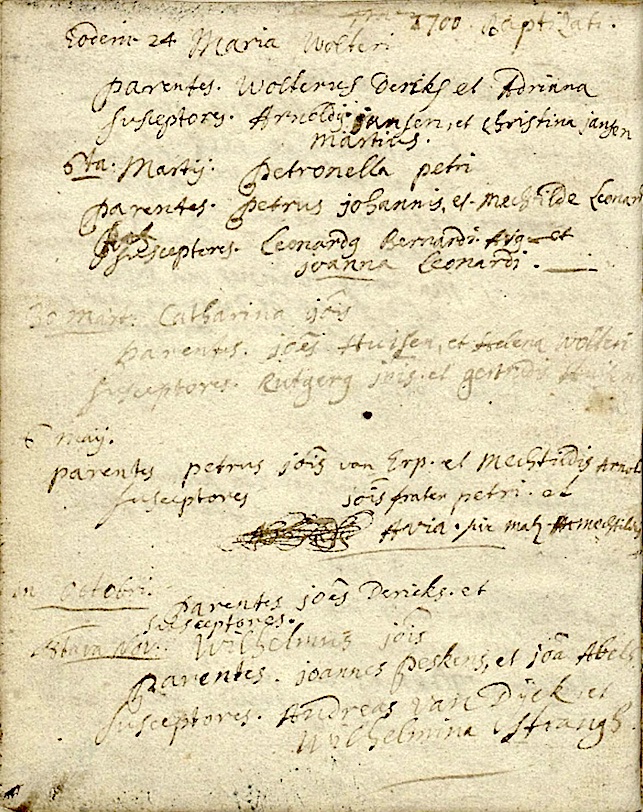 1700. Baptizati.
Eodem 24 Maria Wolteri
parentes. Wolterus Deriks et Adriana
susceptores. Arnoldus jansen, et Christina jansen
martius.
6ta. Martij. Petronella petri
parentes. petrus johannis, et. Mechtilde Leonar
susceptores. Leonardus Bernardi. et
joanna Leonardi.
30 mart. Catharina jois
parentes. joes Huisen, et Helena Wolteri
susceptores. Rutgerus jois. et gertrudis
6 maij.
parentes petrus jois van Erp. et Mechtildis Arnol
susceptores jois frater petri. et
Maria
in octobri.
parentes joes Dericks. et
susceptores.
Nov. Wilhelmus jois
parentes. joannes peskens, et joa Abels
susceptores. Andreas van Dijck et
Wilhelmina